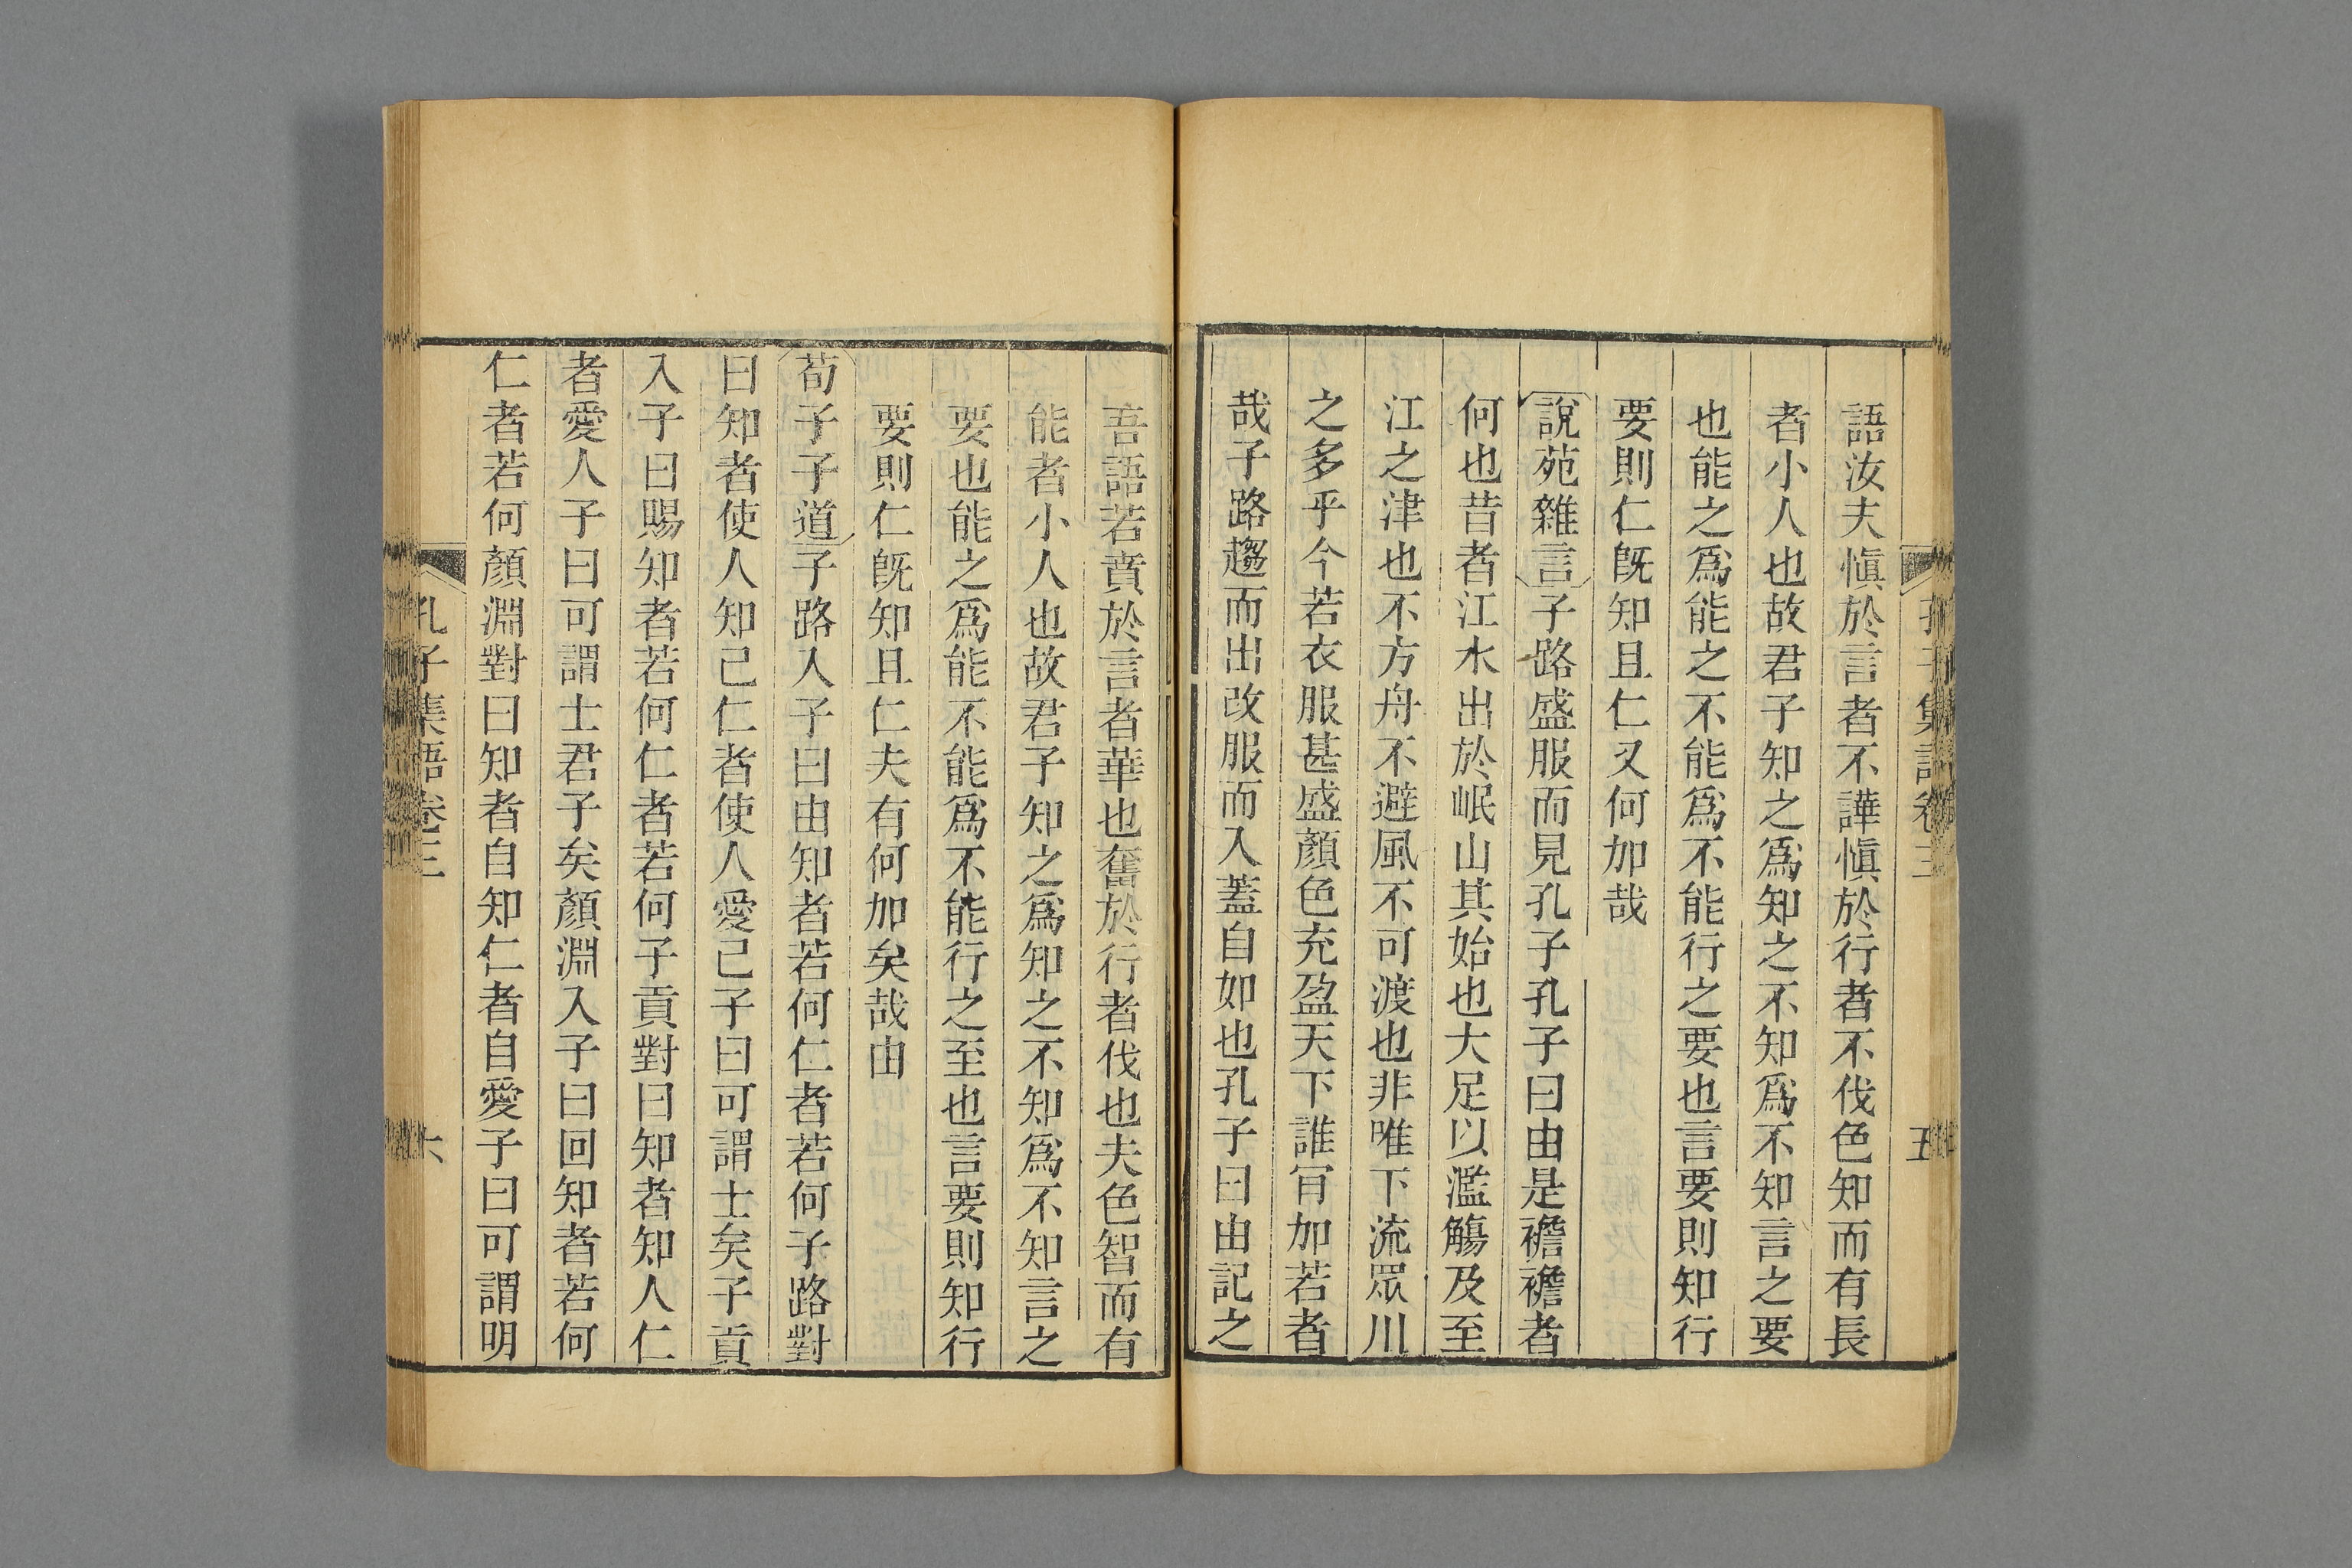 孔子集語卷三
五
語汝夫慎於言者不譁慎於行者不伐色知而有長
者小人也故君子知之爲知之不知爲不知言之要
也能之爲能之不能爲不能行之要也言要則知行
要則仁旣知且仁又何加哉
說苑雜言子路盛服而見孔子孔子曰由是襜襜者
何也昔者江水出於岷山其始也大足以濫觴及至
江之津也不方舟不避風不可渡也非唯下流眾川
之多乎今若衣服甚盛顏色充盈天下誰肎加若者
哉子路趨而出改服而入蓋自如也孔子曰由記之
吾語若賁於言者華也奮於行者伐也夫色智而有
能者小人也故君子知之爲知之不知爲不知言之
要也能之爲能不能爲不能行之至也言要則知行
要則仁旣知且仁夫有何加矣哉由
荀子子道子路入子曰由知者若何仁者若何子路對
曰知者使人知己仁者使人愛己子曰可謂士矣子貢
入子曰賜知者若何仁者若何子貢對曰知者知人仁
者愛人子曰可謂士君子矣顏淵入子曰回知者若何
仁者若何顏淵對曰知者自知仁者自愛子曰可謂明
孔子集語卷三
六